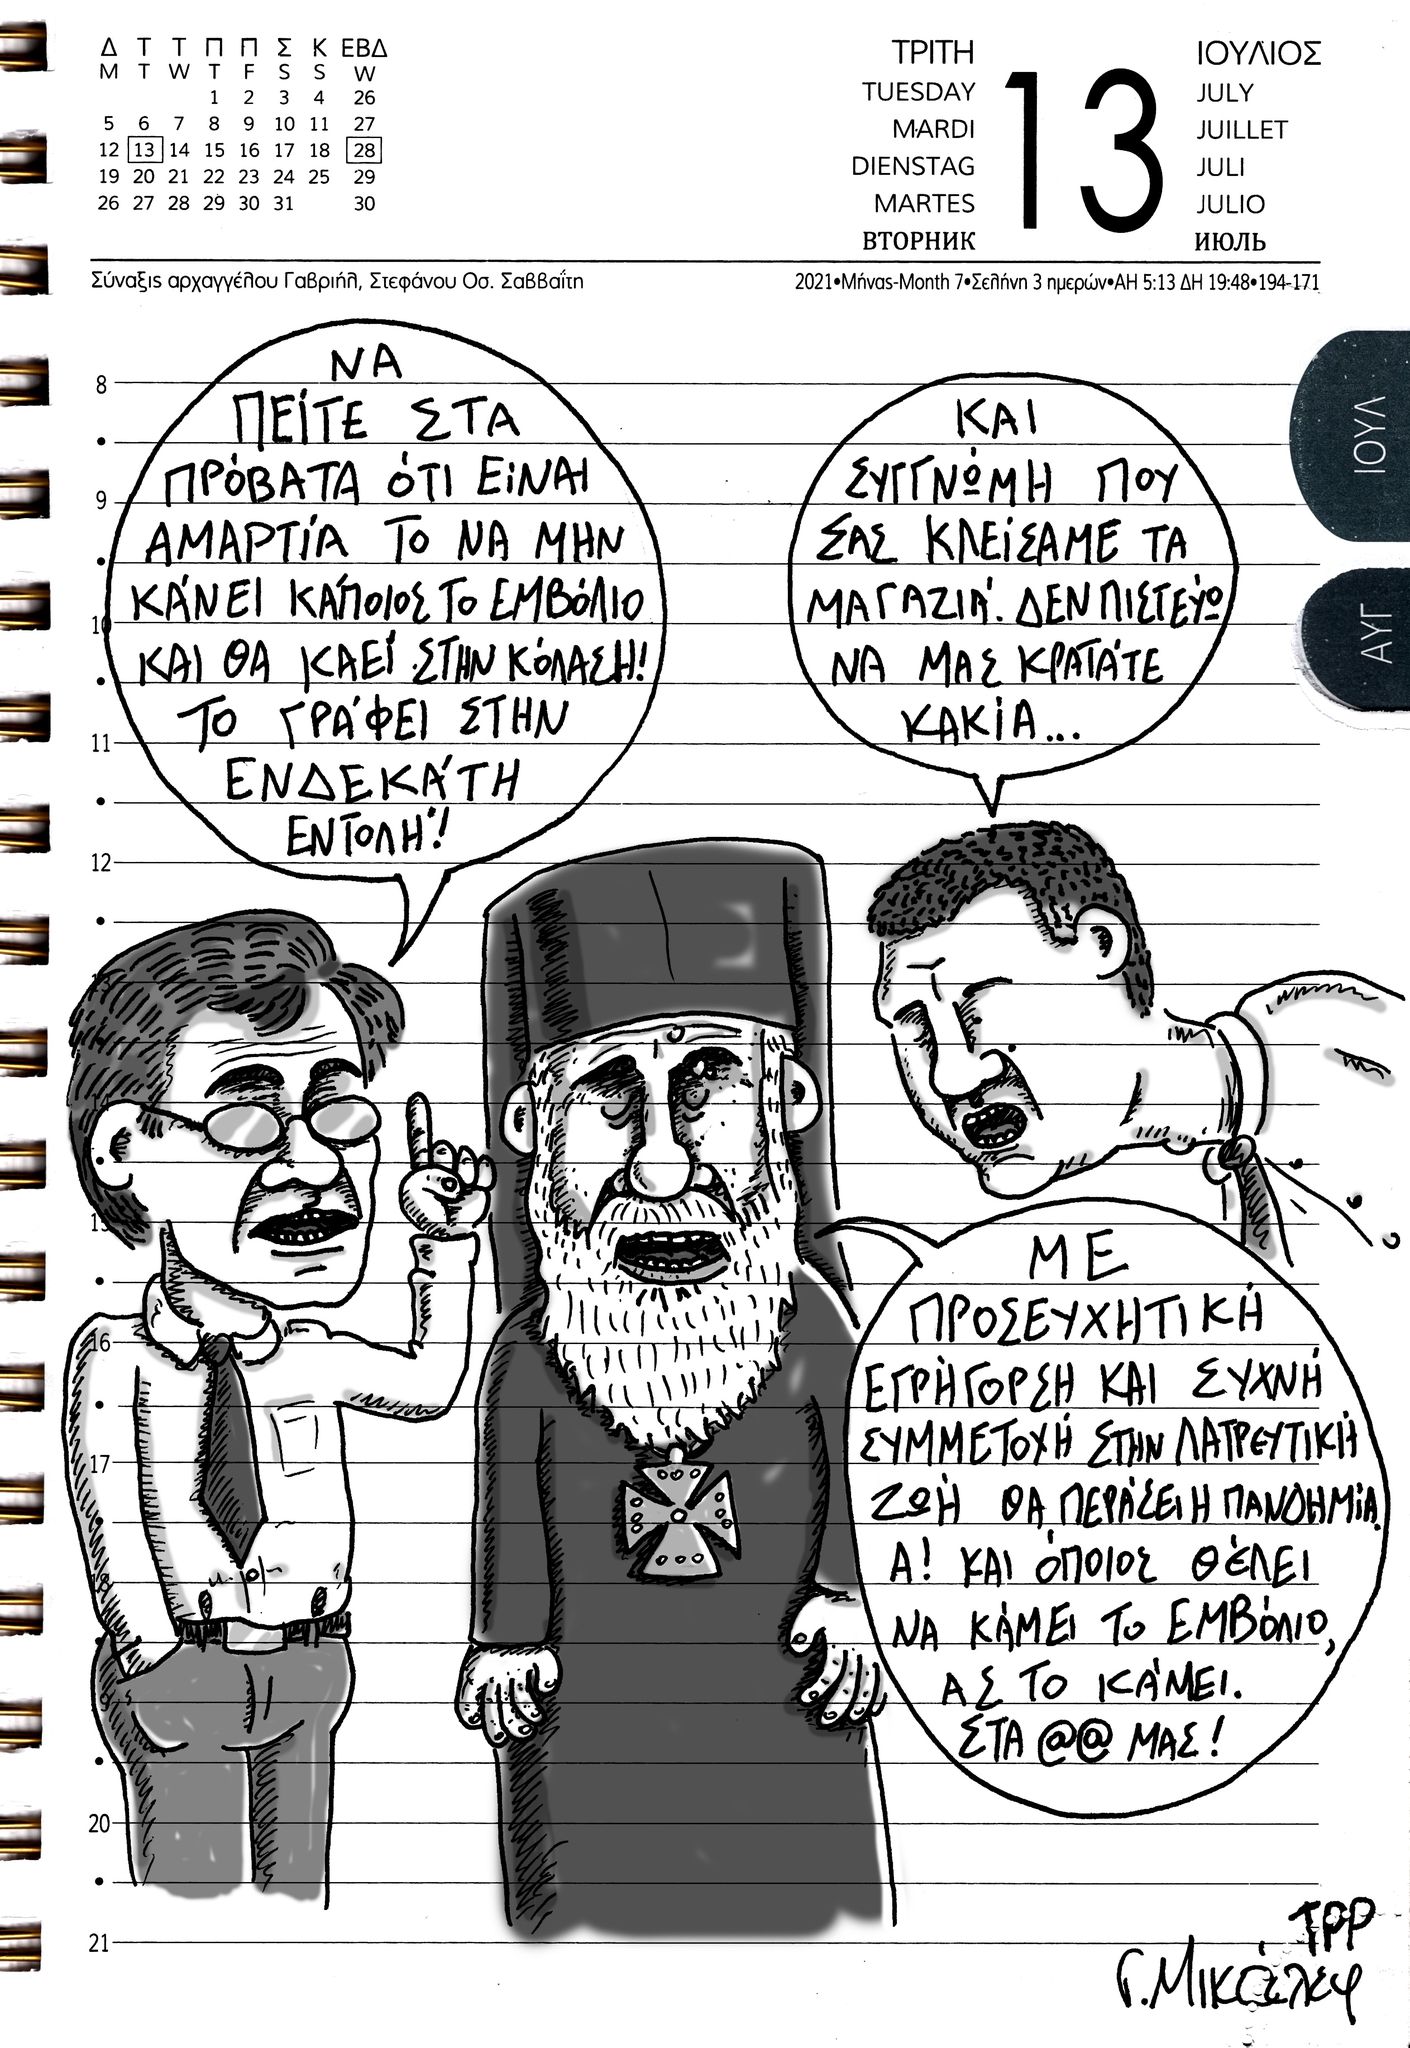 Δ Τ Τ Π Π Σ Κ ΕΒΔ
M T W T F S S W
1 2 3 4 26
5 6 7 8 9 10 11 27
12 13 14 15 16 17 18 28
19 20 21 22 23 24 25 29
26 27 28 29 30 31 30
ΤΡΙΤΗ
TUESDAY
MARDI
DIENSTAG
MARTES
ВТОРНИК
13
ΙΟΥΛΙΟΣ
JULY
JUILLET
JULI
JULIO
ИЮЛЬ
Σύναξις αρχαγγέλου Γαβριήλ, Στεφάνου Οσ. Σαββαΐτη
2021•Μήνας-Month 7•Σελήνη 3 ημερών•ΑΗ 5:13 ΔΗ 19:48•194-171
ΙΟΥΛ
ΑΥΓ
ΝΑ
ΠΕΊΤΕ ΣΤΑ
ΠΡΌΒΑΤΑ ΌΤΙ ΕΊΝΑΙ
ΑΜΑΡΤΊΑ ΤΟ ΝΑ ΜΗΝ
ΚΆΝΕΙ ΚΆΠΟΙΟΣ ΤΟ ΕΜΒΌΛΙΟ
ΚΑΙ ΘΑ ΚΑΕΊ ΣΤΗΝ ΚΌΛΑΣΗ!
ΤΟ ΓΡΆΦΕΙ ΣΤΗΝ
ΕΝΔΕΚΆΤΗ
ΕΝΤΟΛΉ!
ΚΑΙ
ΣΥΓΓΝΏΜΗ ΠΟΥ
ΣΑΣ ΚΛΕΊΣΑΜΕ ΤΑ
ΜΑΓΑΖΙΆ. ΔΕΝ ΠΙΣΤΕΎΩ
ΝΑ ΜΑΣ ΚΡΑΤΆΤΕ
ΚΑΚΊΑ...
ΜΕ
ΠΡΟΣΕΥΧΗΤΙΚΉ
ΕΓΡΉΓΟΡΣΗ ΚΑΙ ΣΥΧΝΉ
ΣΥΜΜΕΤΟΧΉ ΣΤΗΝ ΛΑΤΡΕΥΤΙΚΉ
ΖΩΉ ΘΑ ΠΕΡΆΣΕΙ Η ΠΑΝΔΗΜΊΑ.
Α! ΚΑΙ ΌΠΟΙΟΣ ΘΈΛΕΙ
ΝΑ ΚΆΜΕΙ ΤΟ ΕΜΒΌΛΙΟ,
ΑΣ ΤΟ ΚΆΜΕΙ.
ΣΤΑ @@ ΜΑΣ!
8
9
10
11
12
13
15
16
17
20
21
TPP
Γ. Μικάλεφ